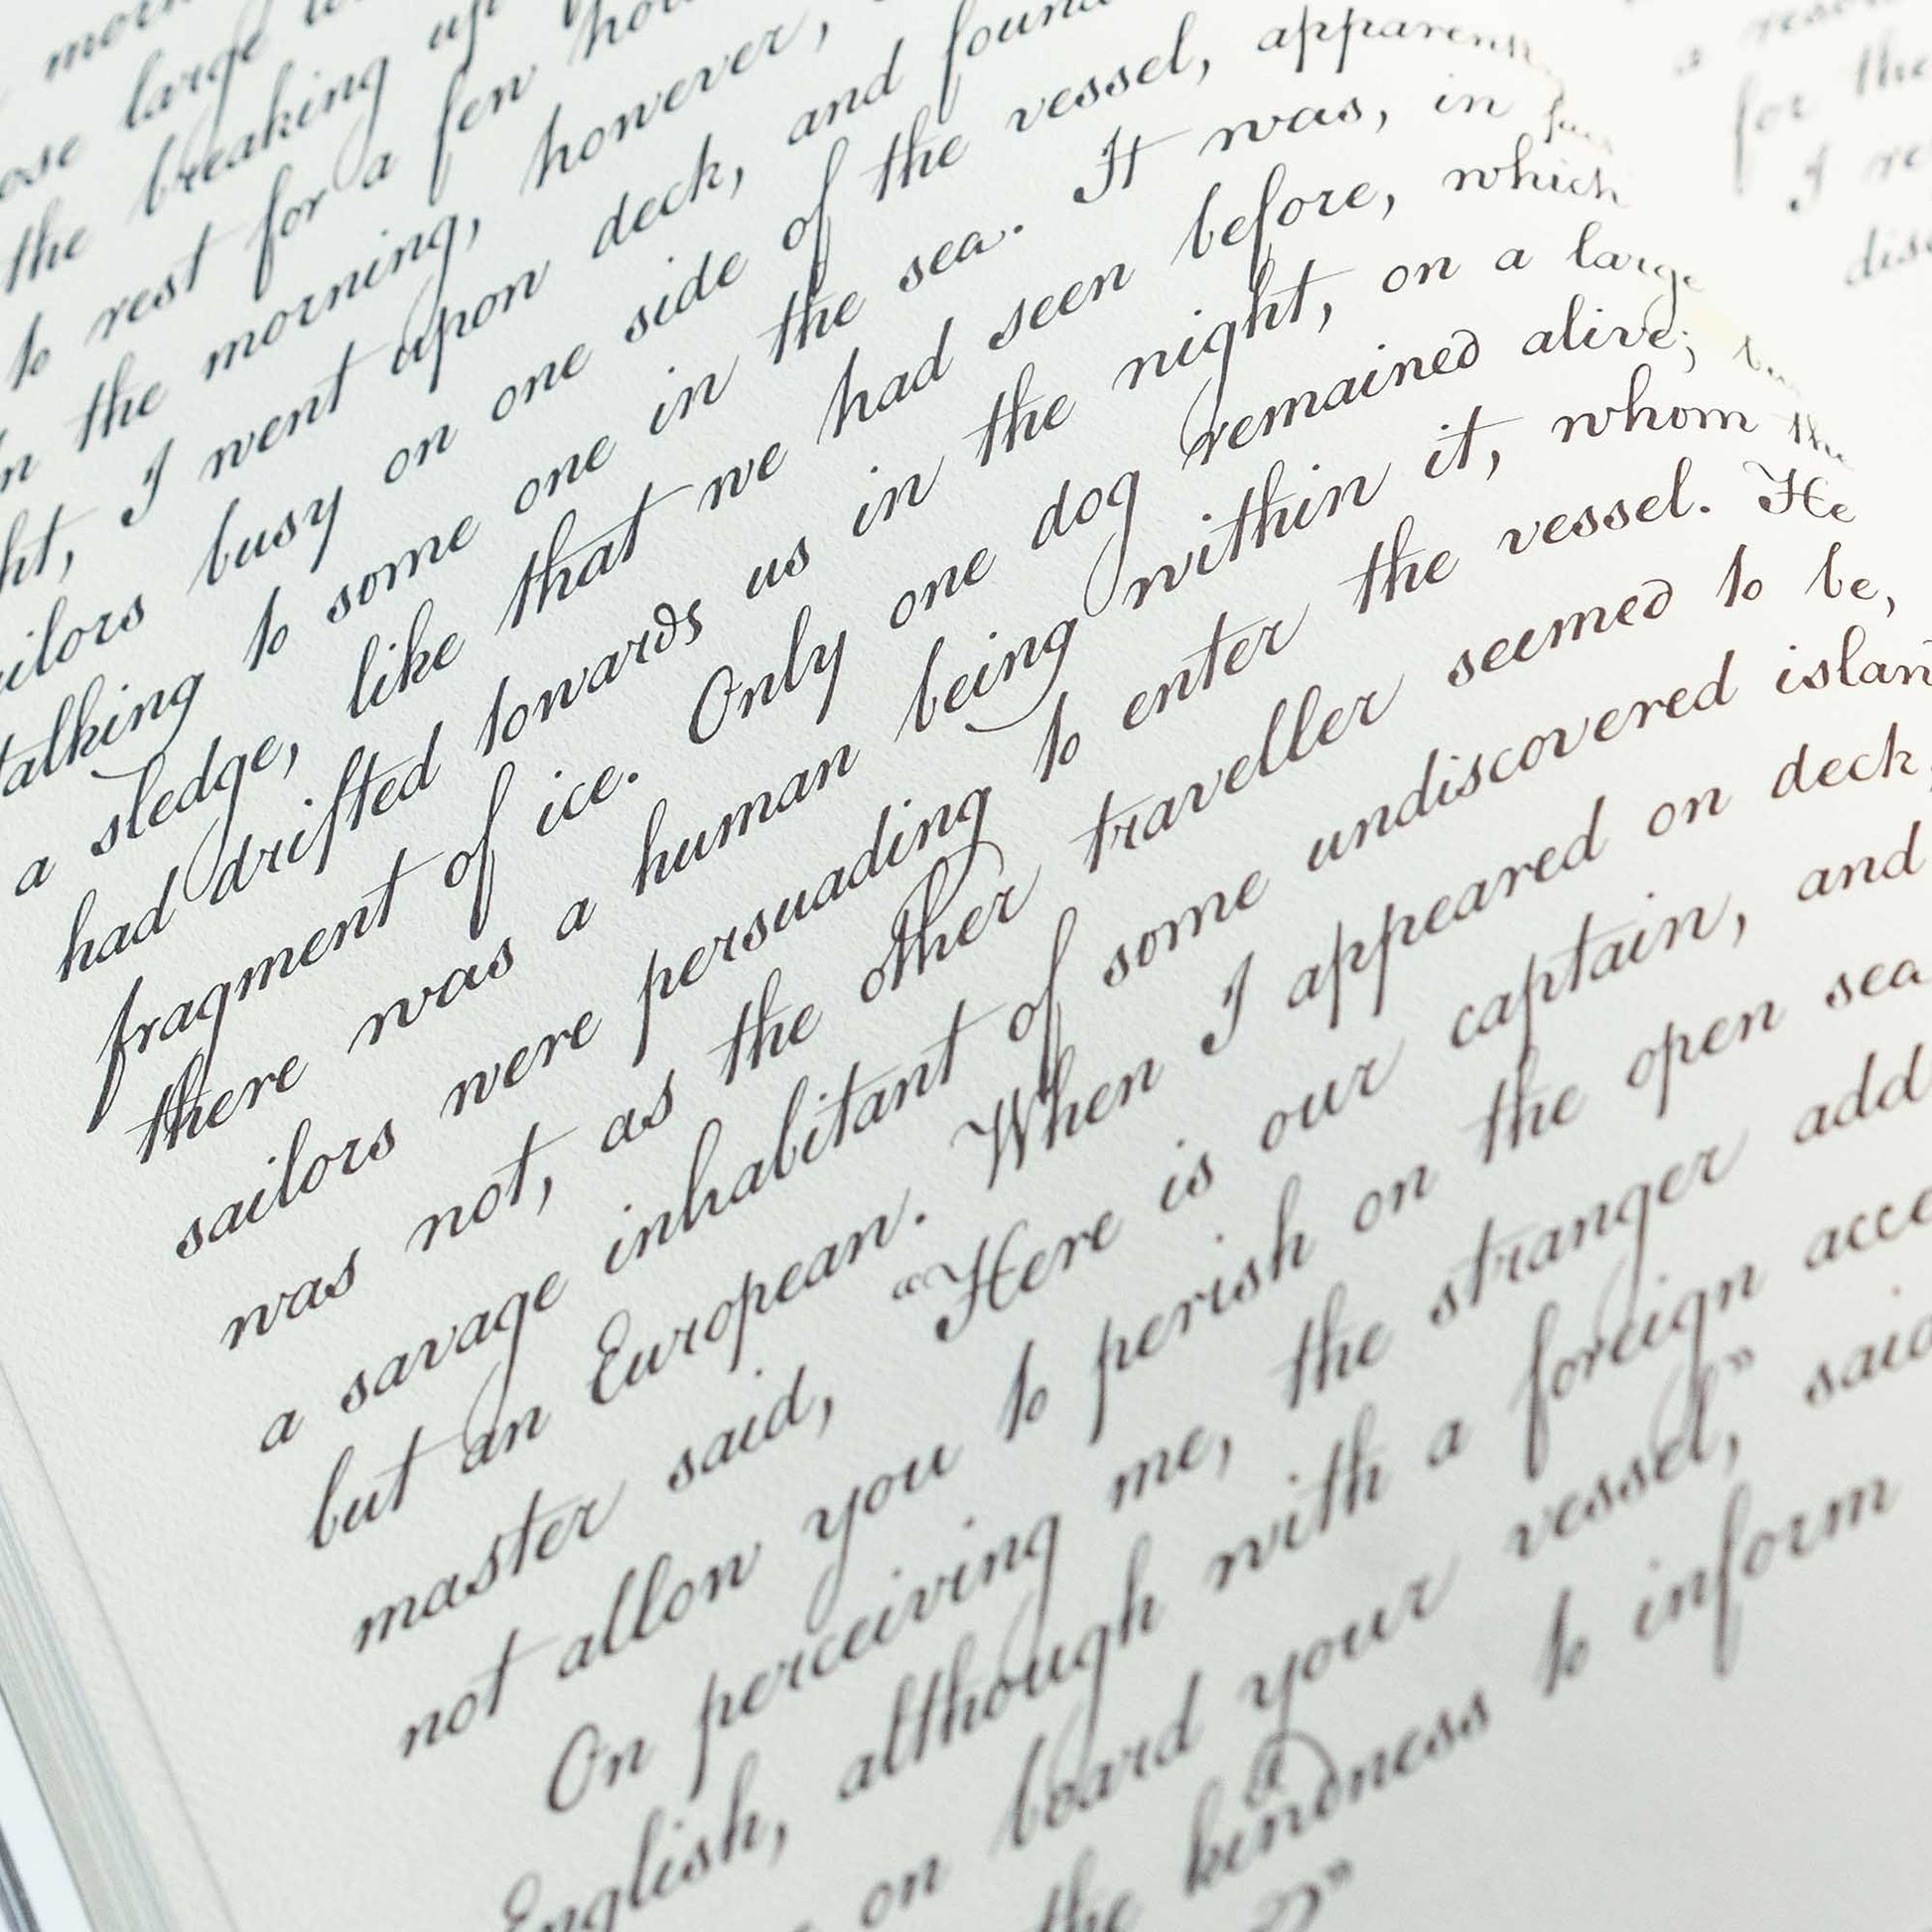 large
the breaking up
to rest for a few
the morning, however,
I went upon deck, and found
busy on one side of the vessel,
talking to some one in the sea. It was, in
a sledge, like that we had seen before, which
had drifted towards us in the night, on a large
fragment of ice. Only one dog remained alive;
there was a human being within it, whom the
sailors were persuading to enter the vessel. He
was not, as the other traveller seemed to be,
a savage inhabitant of some undiscovered
but an European. When I appeared on deck,
master said, “Here is our captain, and
not allow you to perish on the open sea
On perceiving me, the stranger
English, although with a foreign
on board your vessel,” said
the kindness to inform
for the
I